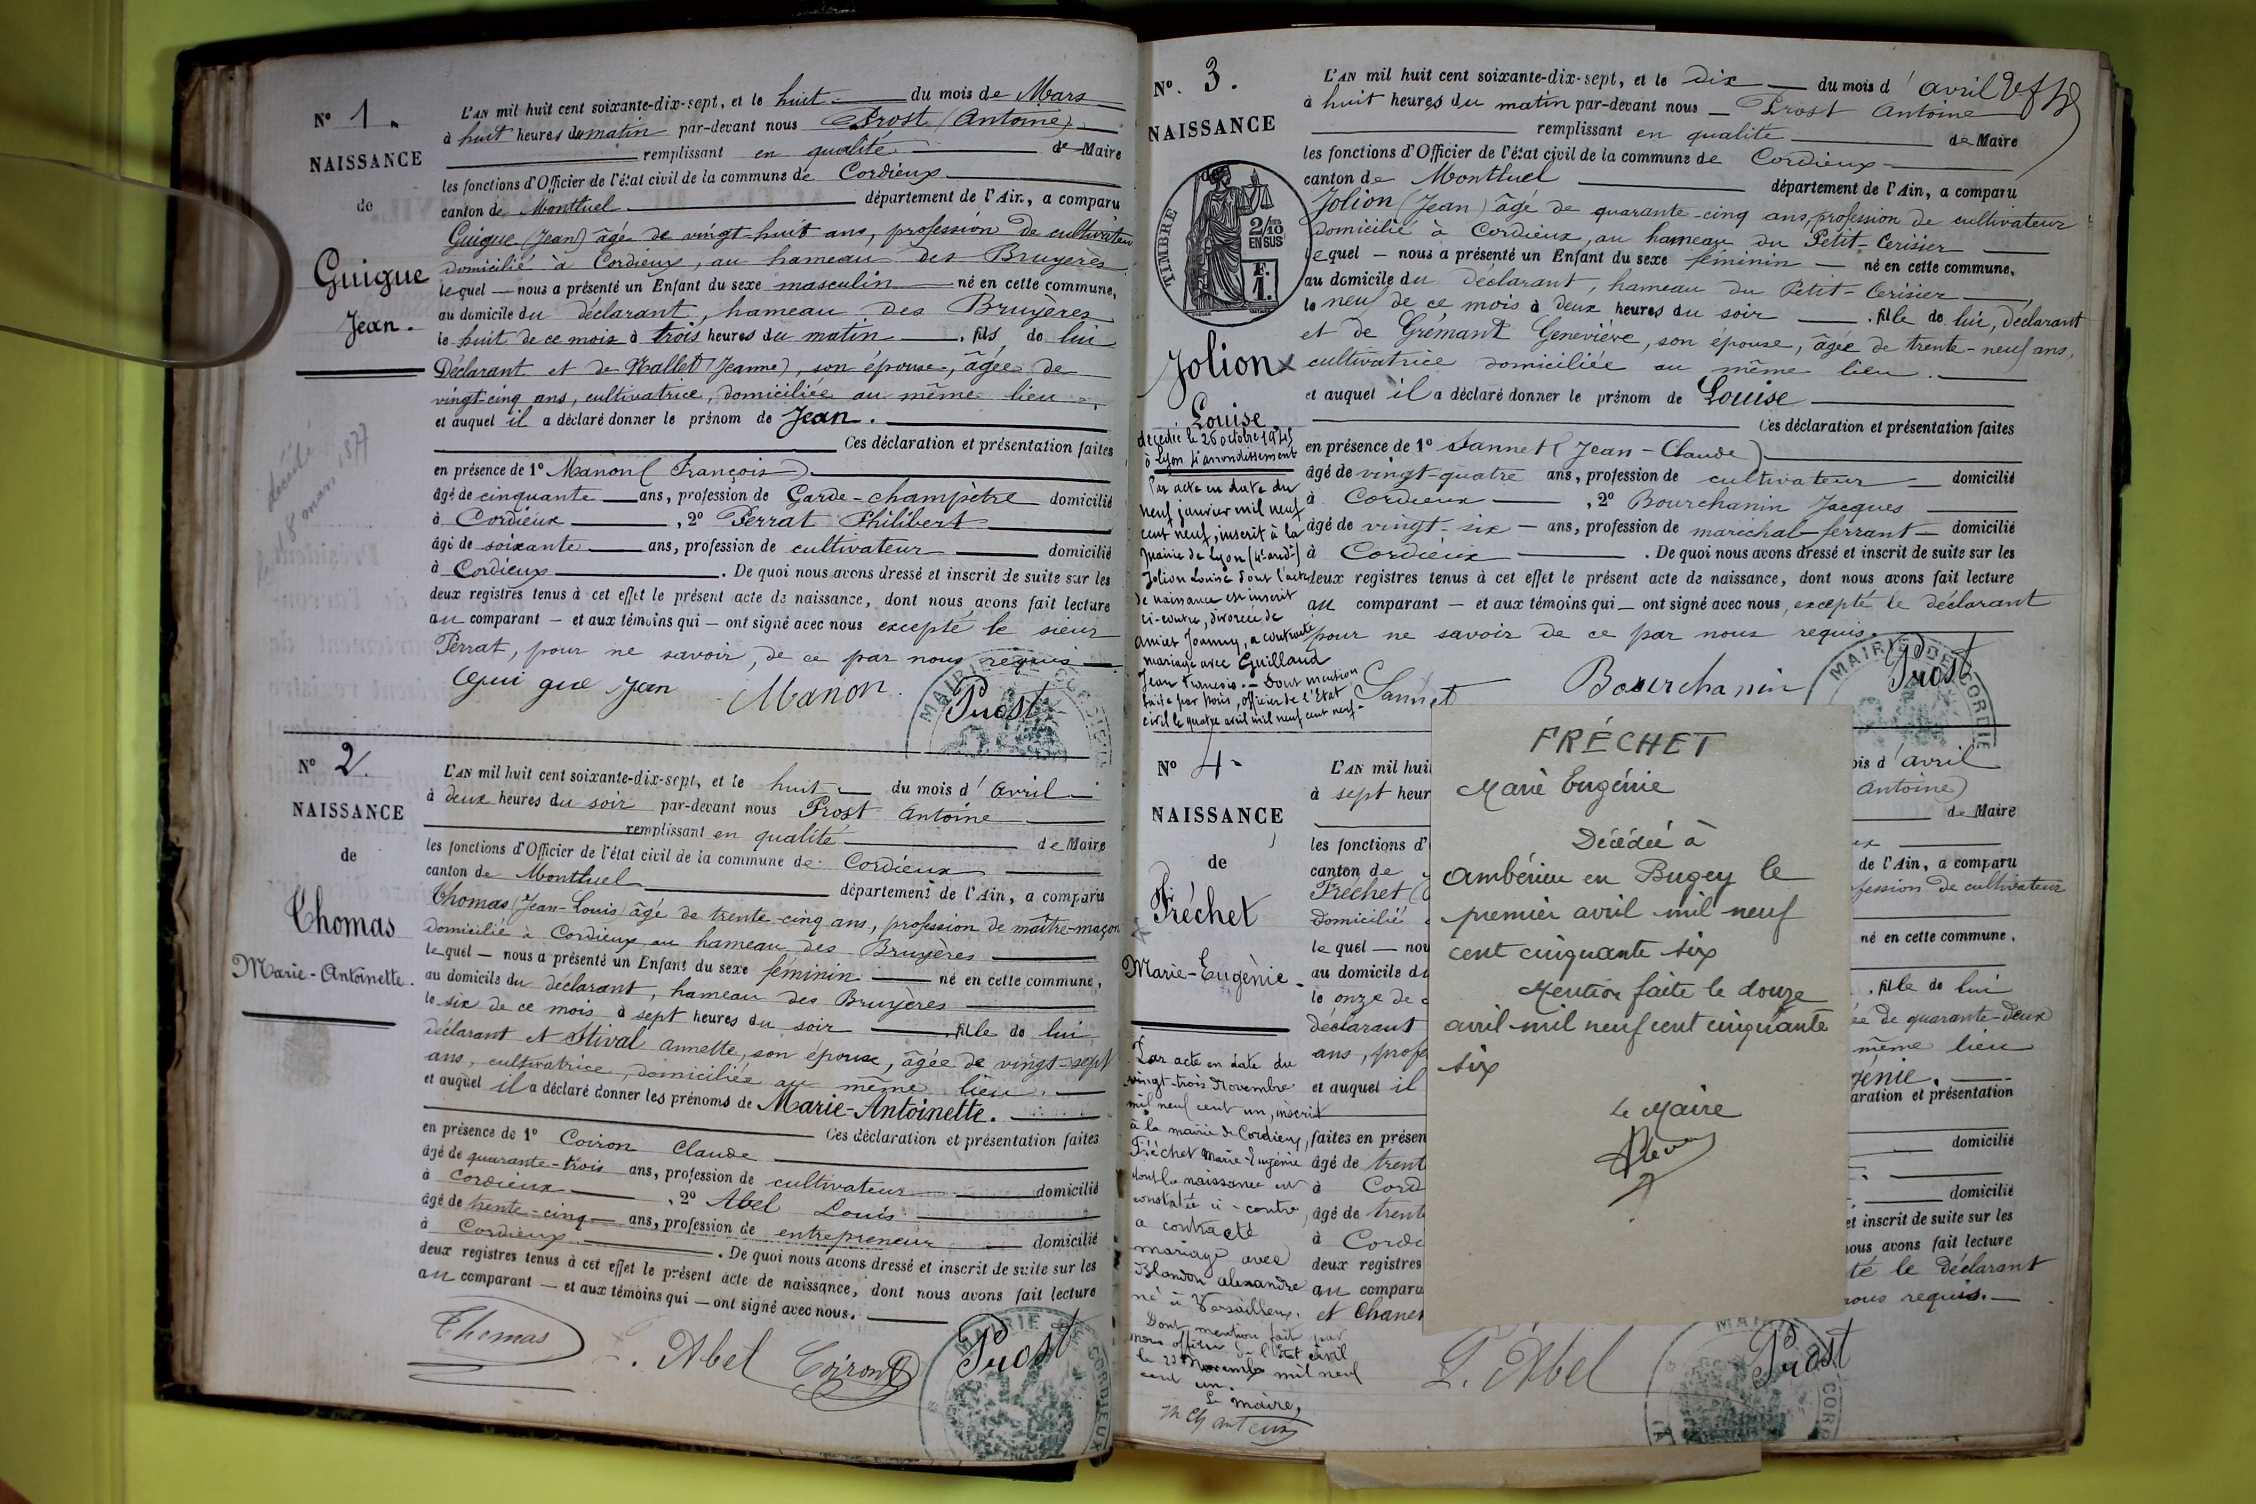 N° 1.
NAISSANCE
de
Guigue
Jean.
décédé
le 8 mars 1877
L'AN mil huit cent soixante-dix-sept, et le huit du mois de Mars
à huit heures du matin par-devant nous Prost (Antoine)
remplissant en qualité de Maire
les fonctions d'Officier de l'état civil de la commune de Cordieux
canton de Montluel département de l'Ain, a comparu
Guigue (Jean) âgé de vingt-huit ans, profession de cultivateur
domicilié à Cordieux, au hameau des Bruyères
lequel — nous a présenté un Enfant du sexe masculin né en cette commune,
au domicile du déclarant, hameau des Bruyères
le huit de ce mois à trois heures du matin . fils de lui
Déclarant et de Mallet (Jeanne), son épouse, âgée de
vingt-cinq ans, cultivatrice, domiciliée au même lieu
et auquel il a déclaré donner le prénom de Jean.
Ces déclaration et présentation faites
en présence de 1° Manon (François)
âgé de cinquante ans, profession de Garde-champêtre domicilié
à Cordieux , 2° Perrat Philibert
âgé de soixante ans, profession de cultivateur domicilié
à Cordieux . De quoi nous avons dressé et inscrit de suite sur les
deux registres tenus à cet effet le présent acte de naissance, dont nous avons fait lecture
au comparant — et aux témoins qui — ont signé avec nous excepté le sieur
Perrat, pour ne savoir, de ce par nous requis
Gui gue Jean Manon. Prost
MAIRIE DE CORDIEUX
N° 2.
NAISSANCE
de
Thomas
Marie-Antoinette.
L'AN mil huit cent soixante-dix-sept, et le huit du mois d'avril
à deux heures du soir par-devant nous Prost Antoine
remplissant en qualité de Maire
les fonctions d'Officier de l'état civil de la commune de Cordieux
canton de Montluel département de l'Ain, a comparu
Thomas (Jean-Louis) âgé de trente-cinq ans, profession de maître-maçon
domicilié à Cordieux au hameau des Bruyères
lequel — nous a présenté un Enfant du sexe féminin né en cette commune,
au domicile du déclarant, hameau des Bruyères
le six de ce mois à sept heures du soir fille de lui
déclarant et Stival Annette, son épouse, âgée de vingt-sept
ans, cultivatrice, domiciliée au même lieu.
et auquel il a déclaré donner les prénoms de Marie-Antoinette.
Ces déclaration et présentation faites
en présence de 1° Coiron Claude
âgé de quarante-trois ans, profession de cultivateur domicilié
à Cordieux , 2° Abel Louis
âgé de trente-cinq ans, profession de entrepreneur domicilié
à Cordieux . De quoi nous avons dressé et inscrit de suite sur les
deux registres tenus à cet effet le présent acte de naissance, dont nous avons fait lecture
au comparant — et aux témoins qui — ont signé avec nous.
Thomas L. Abel Coiron Prost
MAIRIE DE CORDIEUX
N° 3.
NAISSANCE
de
TIMBRE
2/10
EN SUS
F.
1.
Jolion
Louise.
décédée le 26 octobre 1945
à Lyon 4e arrondissement
Par acte en date du
neuf janvier mil neuf
cent neuf, inscrit à la
mairie de Lyon (4e arrdt)
Jolion Louise dont l'acte
de naissance est inscrit
ci-contre, divorcée de
Amiet Joanny, a contracté
mariage avec Guilland
Jean François. — Dont mention
faite par nous, officier de l'Etat
civil le quatre avril mil neuf cent neuf.
L'AN mil huit cent soixante-dix-sept, et le dix du mois d'avril
à huit heures du matin par-devant nous Prost Antoine
remplissant en qualité de Maire
les fonctions d'Officier de l'état civil de la commune de Cordieux
canton de Montluel département de l'Ain, a comparu
Jolion (Jean) âgé de quarante-cinq ans, profession de cultivateur
domicilié à Cordieux, au hameau du Petit-Cerisier
lequel — nous a présenté un Enfant du sexe féminin — né en cette commune,
au domicile du déclarant, hameau du Petit-Cerisier
le neuf de ce mois à deux heures du soir . fille de lui, déclarant
et de Grémant Geneviève, son épouse, âgée de trente-neuf ans,
cultivatrice domiciliée au même lieu.
et auquel il a déclaré donner le prénom de Louise
Ces déclaration et présentation faites
en présence de 1° Sannet (Jean-Claude)
âgé de vingt-quatre ans, profession de cultivateur domicilié
à Cordieux , 2° Bourchanin Jacques
âgé de vingt-six — ans, profession de maréchal-ferrant — domicilié
à Cordieux . De quoi nous avons dressé et inscrit de suite sur les
deux registres tenus à cet effet le présent acte de naissance, dont nous avons fait lecture
au comparant — et aux témoins qui — ont signé avec nous, excepté le déclarant
pour ne savoir de ce par nous requis.
Sannet Bourchanin Prost
MAIRIE DE CORDIE
N° 4
NAISSANCE
de
Fréchet
Marie-Eugénie.
Par acte en date du
vingt-trois Novembre
mil neuf cent un, inscrit
à la mairie de Cordieux,
Fréchet Marie-Eugénie
dont la naissance est
constatée ci-contre,
a contracté
mariage avec
Blandon Alexandre
né à Versailleux.
Dont mention fait par
nous officier de l'Etat civil
le 23 Novembre mil neuf
cent un.
Le maire,
L'AN mil hui
à sept heur
les fonctions d'
canton de
Fréchet
Domicilié
le quel — nou
au domicile d
le onze de
déclarant
ans, profe
et auquel il
faites en présen
âgé de trent
à Cord
âgé de trent
à Cordi
deux registres
au compara
et Chane
FRÉCHET
Marie Eugénie
Décédée à
Ambérieu en Bugey le
premier avril mil neuf
cent cinquante six
Mention faite le douze
avril mil neuf cent cinquante
six
Le Maire
ois d'avril
Antoine)
de Maire
de l'Ain, a comparu
fession de cultivateur
né en cette commune.
. fille de lui
ée de quarante-deux
même lieu
génie.
aration et présentation
domicilié
domicilié
et inscrit de suite sur les
nous avons fait lecture
té le déclarant
nous requis.
L. Abel Prost
MAIRI CORDIEUX